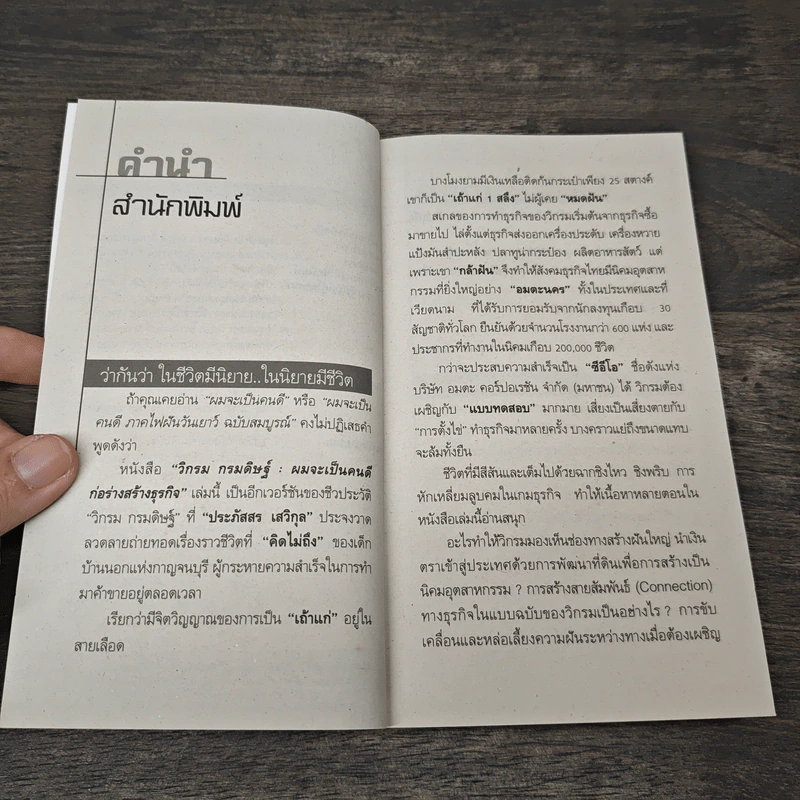 คำนำ
สำนักพิมพ์
ว่ากันว่า ในชีวิตมีนิยาย..ในนิยายมีชีวิต
ถ้าคุณเคยอ่าน "ผมจะเป็นคนดี" หรือ "ผมจะเป็น
คนดี ภาคไฟฝันวันเยาว์ ฉบับสมบูรณ์" คงไม่ปฏิเสธคำ
พูดดังว่า
หนังสือ "วิกรม กรมดิษฐ์ : ผมจะเป็นคนดี
ก่อร่างสร้างธุรกิจ" เล่มนี้ เป็นอีกเวอร์ชันของชีวประวัติ
"วิกรม กรมดิษฐ์" ที่ "ประภัสสร เสวิกุล" ประจงวาด
ลวดลายถ่ายทอดเรื่องราวชีวิตที่ "คิดไม่ถึง" ของเด็ก
บ้านนอกแห่งกาญจนบุรี ผู้กระหายความสำเร็จในการทำ
มาค้าขายอยู่ตลอดเวลา
เรียกว่ามีจิตวิญญาณของการเป็น "เถ้าแก่" อยู่ใน
สายเลือด
บางโมงยามมีเงินเหลือติดก้นกระเป๋าเพียง 25 สตางค์
เขาก็เป็น "เถ้าแก่ 1 สลึง" ไม่ผู้เคย "หมดฝัน"
สเกลของการทำธุรกิจของวิกรมเริ่มต้นจากธุรกิจซื้อ
มาขายไป ไล่ตั้งแต่ธุรกิจส่งออกเครื่องประดับ เครื่องหวาย
แป้งมันสำปะหลัง ปลาทูน่ากระป๋อง ผลิตอาหารสัตว์ แต่
เพราะเขา "กล้าฝัน" จึงทำให้สังคมธุรกิจไทยมีนิคมอุตสาห
กรรมที่ยิ่งใหญ่อย่าง "อมตะนคร" ทั้งในประเทศและที่
เวียดนาม ที่ได้รับการยอมรับจากนักลงทุนเกือบ 30
สัญชาติทั่วโลก ยืนยันด้วยจำนวนโรงงานกว่า 600 แห่ง และ
ประชากรที่ทำงานในนิคมเกือบ 200,000 ชีวิต
กว่าจะประสบความสำเร็จเป็น "ซีอีโอ" ชื่อดังแห่ง
บริษัท อมตะ คอร์ปอเรชัน จำกัด (มหาชน) ได้ วิกรมต้อง
เผชิญกับ "แบบทดสอบ" มากมาย เสี่ยงเป็นเสี่ยงตายกับ
"การตั้งไข่" ทำธุรกิจมาหลายครั้ง บางคราวแย่ถึงขนาดแทบ
จะล้มทั้งยืน
ชีวิตที่มีสีสันและเต็มไปด้วยฉากชิงไหว ชิงพริบ การ
หักเหลี่ยมลูบคมในเกมธุรกิจ ทำให้เนื้อหาหลายตอนใน
หนังสือเล่มนี้อ่านสนุก
อะไรทำให้วิกรมมองเห็นช่องทางสร้างฝันใหญ่ นำเงิน
ตราเข้าสู่ประเทศด้วยการพัฒนาที่ดินเพื่อการสร้างเป็น
นิคมอุตสาหกรรม ? การสร้างสายสัมพันธ์ (Connection)
ทางธุรกิจในแบบฉบับของวิกรมเป็นอย่างไร ? การขับ
เคลื่อนและหล่อเลี้ยงความฝันระหว่างทางเมื่อต้องเผชิญ